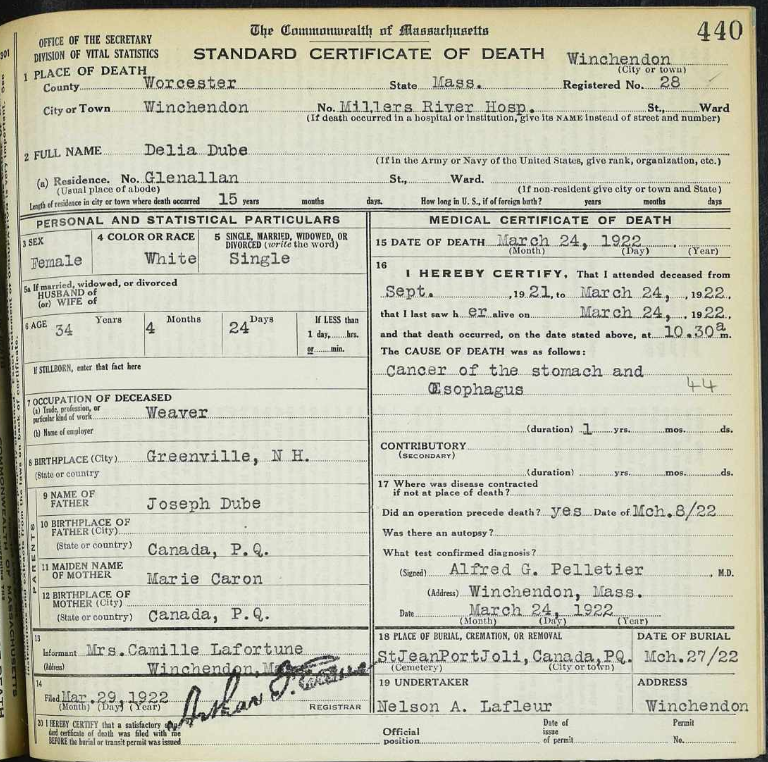 The Commonwealth of Massachusetts
440
OFFICE OF THE SECRETARY
DIVISION OF VITAL STATISTICS
STANDARD CERTIFICATE OF DEATH
Winchendon
(City or town)
1 PLACE OF DEATH
County Worcester State Mass. Registered No. 28
City or Town Winchendon No. Millers River Hosp. St., Ward
(If death occurred in a hospital or institution, give its NAME instead of street and number)
2 FULL NAME Delia Dube
(If in the Army or Navy of the United States, give rank, organization, etc.)
(a) Residence. No. Glenallan St., Ward.
(Usual place of abode) (If non-resident give city or town and State)
Length of residence in city or town where death occurred 15 years months days. How long in U. S., if of foreign birth? years months days
PERSONAL AND STATISTICAL PARTICULARS
3 SEX
Female
4 COLOR OR RACE
White
5 SINGLE, MARRIED, WIDOWED, OR
DIVORCED (write the word)
Single
5a If married, widowed, or divorced
HUSBAND of
(or) WIFE of
6 AGE 34 Years 4 Months 24 Days
If LESS than
1 day,....hrs.
or.....min.
If STILLBORN, enter that fact here
7 OCCUPATION OF DECEASED
(a) Trade, profession, or
particular kind of work Weaver
(b) Name of employer
8 BIRTHPLACE (City) Greenville, N H.
(State or country)
PARENTS
9 NAME OF
FATHER Joseph Dube
10 BIRTHPLACE OF
FATHER (City)
(State or country) Canada, P.Q.
11 MAIDEN NAME
OF MOTHER Marie Caron
12 BIRTHPLACE OF
MOTHER (City)
(State or country) Canada, P.Q.
13
Informant Mrs. Camille Lafortune
(Address) Winchendon,
14
Filed Mar. 29, 1922
(Month) (Day) (Year)
Arthur
REGISTRAR
MEDICAL CERTIFICATE OF DEATH
15 DATE OF DEATH March 24, 1922
(Month) (Day) (Year)
16
I HEREBY CERTIFY, That I attended deceased from
Sept. , 1921, to March 24, , 1922,
that I last saw h er alive on March 24, , 1922,
and that death occurred, on the date stated above, at 10.30a m.
The CAUSE OF DEATH was as follows:
Cancer of the stomach and
Œsophagus 44
(duration) 1 yrs. mos. ds.
CONTRIBUTORY
(SECONDARY)
(duration) yrs. mos. ds.
17 Where was disease contracted
if not at place of death?
Did an operation precede death? yes Date of Mch.8/22
Was there an autopsy?
What test confirmed diagnosis?
(Signed) Alfred G. Pelletier , M.D.
(Address) Winchendon, Mass.
Date March 24, 1922
(Month) (Day) (Year)
18 PLACE OF BURIAL, CREMATION, OR REMOVAL
StJeanPortJoli, Canada, PQ.
(Cemetery) (City or town)
DATE OF BURIAL
Mch.27/22
19 UNDERTAKER
Nelson A. Lafleur
ADDRESS
Winchendon
20 I HEREBY CERTIFY that a satisfactory
dard certificate of death was filed with me
BEFORE the burial or transit permit was issued
Official
position
Date of
issue
of permit
Permit
No.